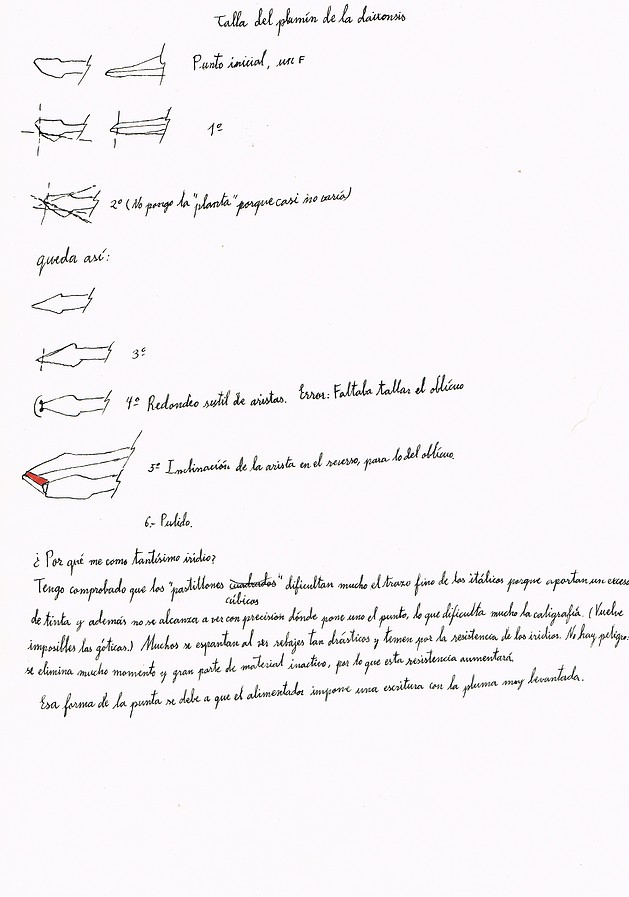 Talla del plumín de la daironsis
Punto inicial, un F
1º
2º (No pongo la "planta" porque casi no varía)
queda así:
3º
4º Redondeo sutil de aristas. Error: Faltaba tallar el oblícuo
5º Inclinación de la arista en el reverso, para lo del oblícuo.
6.- Pulido.
¿Por qué me como tantísimo iridio?
Tengo comprobado que los "pastillones cuadrados" dificultan mucho el trazo fino de los itálicos porque aportan un exceso
cúbicos
de tinta y además no se alcanza a ver con precisión dónde pone uno el punto, lo que dificulta mucho la caligrafía. (Vuelve
imposibles las góticas.) Muchos se espantan al ver rebajes tan drásticos y temen por la resistencia de los iridios. No hay peligro:
se elimina mucho momento y gran parte de material inactivo, por lo que esta resistencia aumentará.
Esa forma de la punta se debe a que el alimentador impone una escritura con la pluma muy levantada.